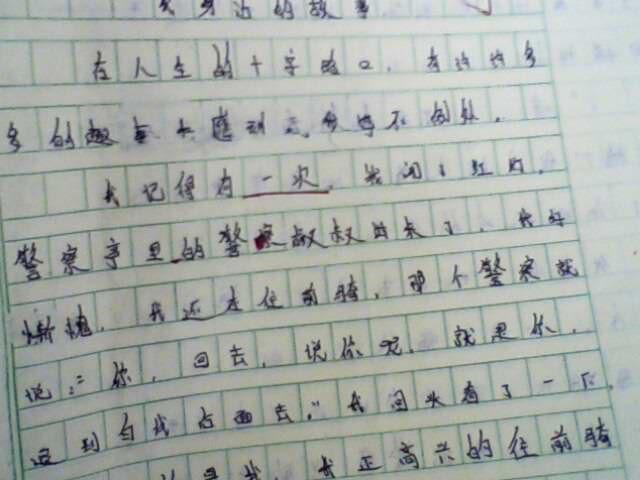 我身边的故事
在人生的十字的口,有许许多
多的趣事大道到三,但写不倒处。
我记得有一次,我闯了红灯,
警察亭里的警察叔叔出来了,我好
惭愧,我还是往前骑,那个警察就
说:"你,回去,说你呢,就是你,
退到白线后面去。"我回头看了一下,
是我,我正高兴的往前骑